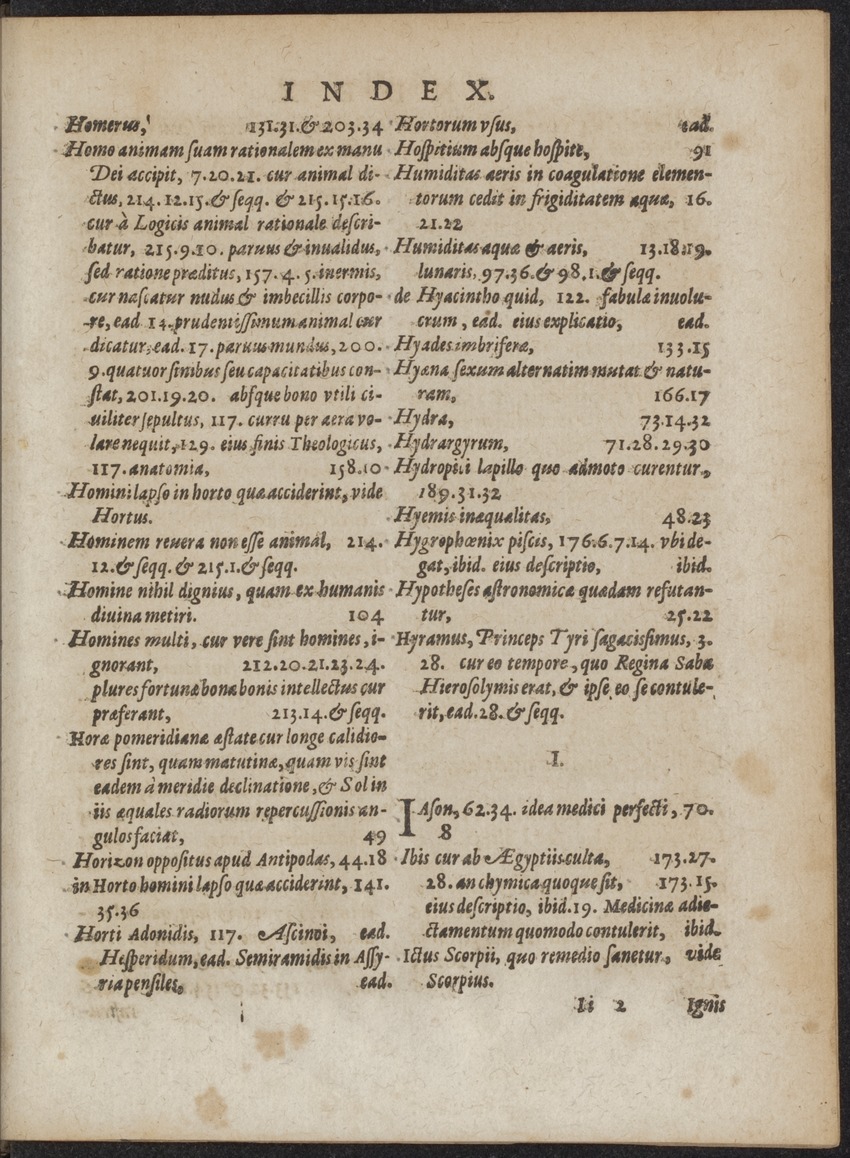 INDEX.
Homerus, 131.31.& 203.34
Homo animam suam rationalem ex manu
Dei accipit, 7.20.21. cur animal di-
ctus, 214.12.15.& seqq. & 215.15.16.
cur à Logicis animal rationale descri-
batur, 215.9.10. paruus & inualidus,
sed ratione præditus, 157.4.5. inermis,
cur nascatur nudus & imbecillis corpo-
re, ead 14. prudentissimum animal cur
dicatur, ead. 17. paruus mundus, 200.
9. quatuor finibus seu capacitatibus con-
stat, 201.19.20. absque bono vtili ci-
uiliter sepultus, 117. curru per aera vo-
lare nequit, 129. eius finis Theologicus,
117. anatomia, 158.10
Homini lapso in horto quæ acciderint, vide
Hortus.
Hominem reuera non esse animal, 214.
12.& seqq. & 215.1.& seqq.
Homine nihil dignius, quam ex humanis
diuina metiri. 104
Homines multi, cur vere sint homines, i-
gnorant, 212.20.21.23.24.
plures fortunæ bona bonis intellectus cur
præferant, 213.14.& seqq.
Horæ pomeridianæ æstate cur longe calidio-
res sint, quam matutinæ, quam vis sint
eadem à meridie declinatione, & Sol in
iis æquales radiorum repercussionis an-
gulos faciat, 49
Horizon oppositus apud Antipodas, 44.18
in Horto homini lapso quæ acciderint, 141.
35.36
Horti Adonidis, 117. Ascinoi, ead.
Hesperidum, ead. Semiramidis in Assy-
ria pensiles, ead.
Hortorum vsus, ead.
Hospitium absque hospite, 91
Humiditas aeris in coagulatione elemen-
torum cedit in frigiditatem aquæ, 16.
21.22
Humiditas aquæ & aeris, 13.18.19.
lunaris, 97.36.& 98.1.& seqq.
de Hyacintho quid, 122. fabulæ inuolu-
crum, ead. eius explicatio, ead.
Hyades imbriferæ, 133.15
Hyæna sexum alternatim mutat & natu-
ram, 166.17
Hydra, 73.14.32
Hydrargyrum, 71.28.29.30
Hydropici lapillo quo admoto curentur,
189.31.32
Hyemis inæqualitas, 48.23
Hygrophœnix piscis, 176.6.7.14. vbi de-
gat, ibid. eius descriptio, ibid.
Hypotheses astronomicæ quædam refutan-
tur, 25.22
Hyramus, Princeps Tyri sagacissimus, 3.
28. cur eo tempore, quo Regina Sabæ
Hierosolymis erat, & ipse eo se contule-
rit, ead. 28.& seqq.
I.
IAson, 62.34. idea medici perfecti, 70.
8
Ibis cur ab Ægyptiis culta, 173.27.
28. an chymica quoque sit, 173.15.
eius descriptio, ibid.19. Medicinæ adie-
ctamentum quomodo contulerit, ibid.
Ictus Scorpii, quo remedio sanetur, vide
Scorpius.
Ii 2 Ignis